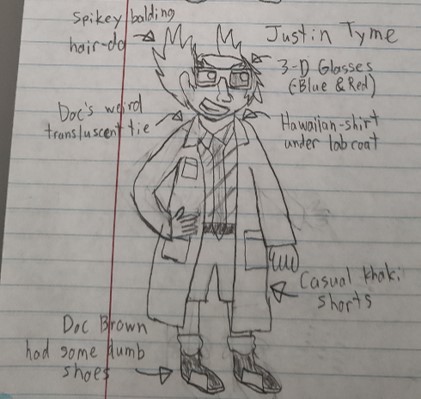 Spikey balding
hair-do
Justin Tyme
3-D Glasses
(-Blue & Red)
Doc's weird
transluscent tie
Hawaiian-shirt
under labcoat
Casual khaki
shorts
Doc Brown
had some dumb
shoes